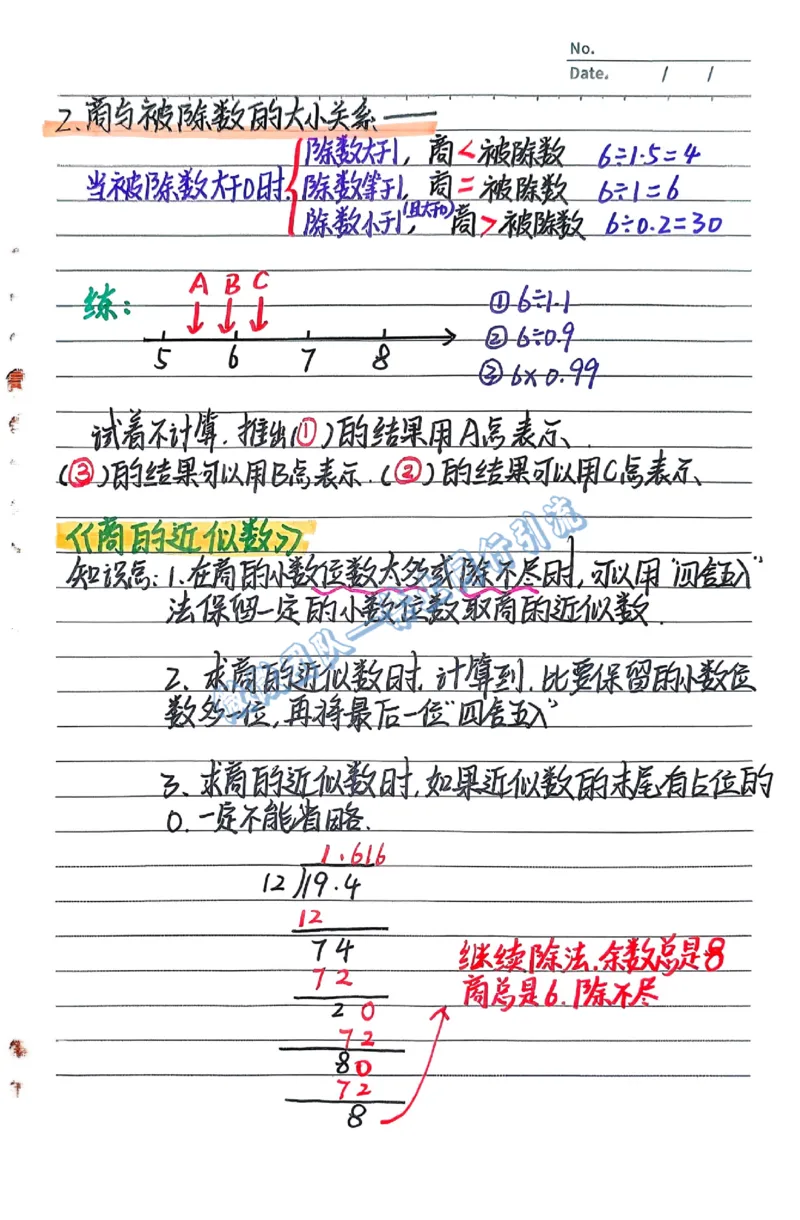 No.
Date. / /
2、商与被除数的大小关系——
除数大于1，商<被除数 6÷1.5=4
当被除数大于0时 除数等于1，商=被除数 6÷1=6
除数小于1(且大于0)，商>被除数 6÷0.2=30
练：
A B C
5 6 7 8
① 6÷1.1
② 6÷0.9
③ 6×0.99
试着不计算，推出(①)的结果用A点表示、
(③)的结果可以用B点表示.(②)的结果可以用C点表示、
《商的近似数》
知识点：1.在商的小数位数太多或除不尽时，可以用“四舍五入”
法保留一定的小数位数取商的近似数.
2、求商的近似数时，计算到，比要保留的小数位
数多一位，再将最后一位“四舍五入”
3、求商的近似数时，如果近似数的末尾有占位的
0.一定不能省略.
1.616
12)19.4
12
74
72
20
72
80
72
8
继续除法.余数总是8
商总是6.除不尽